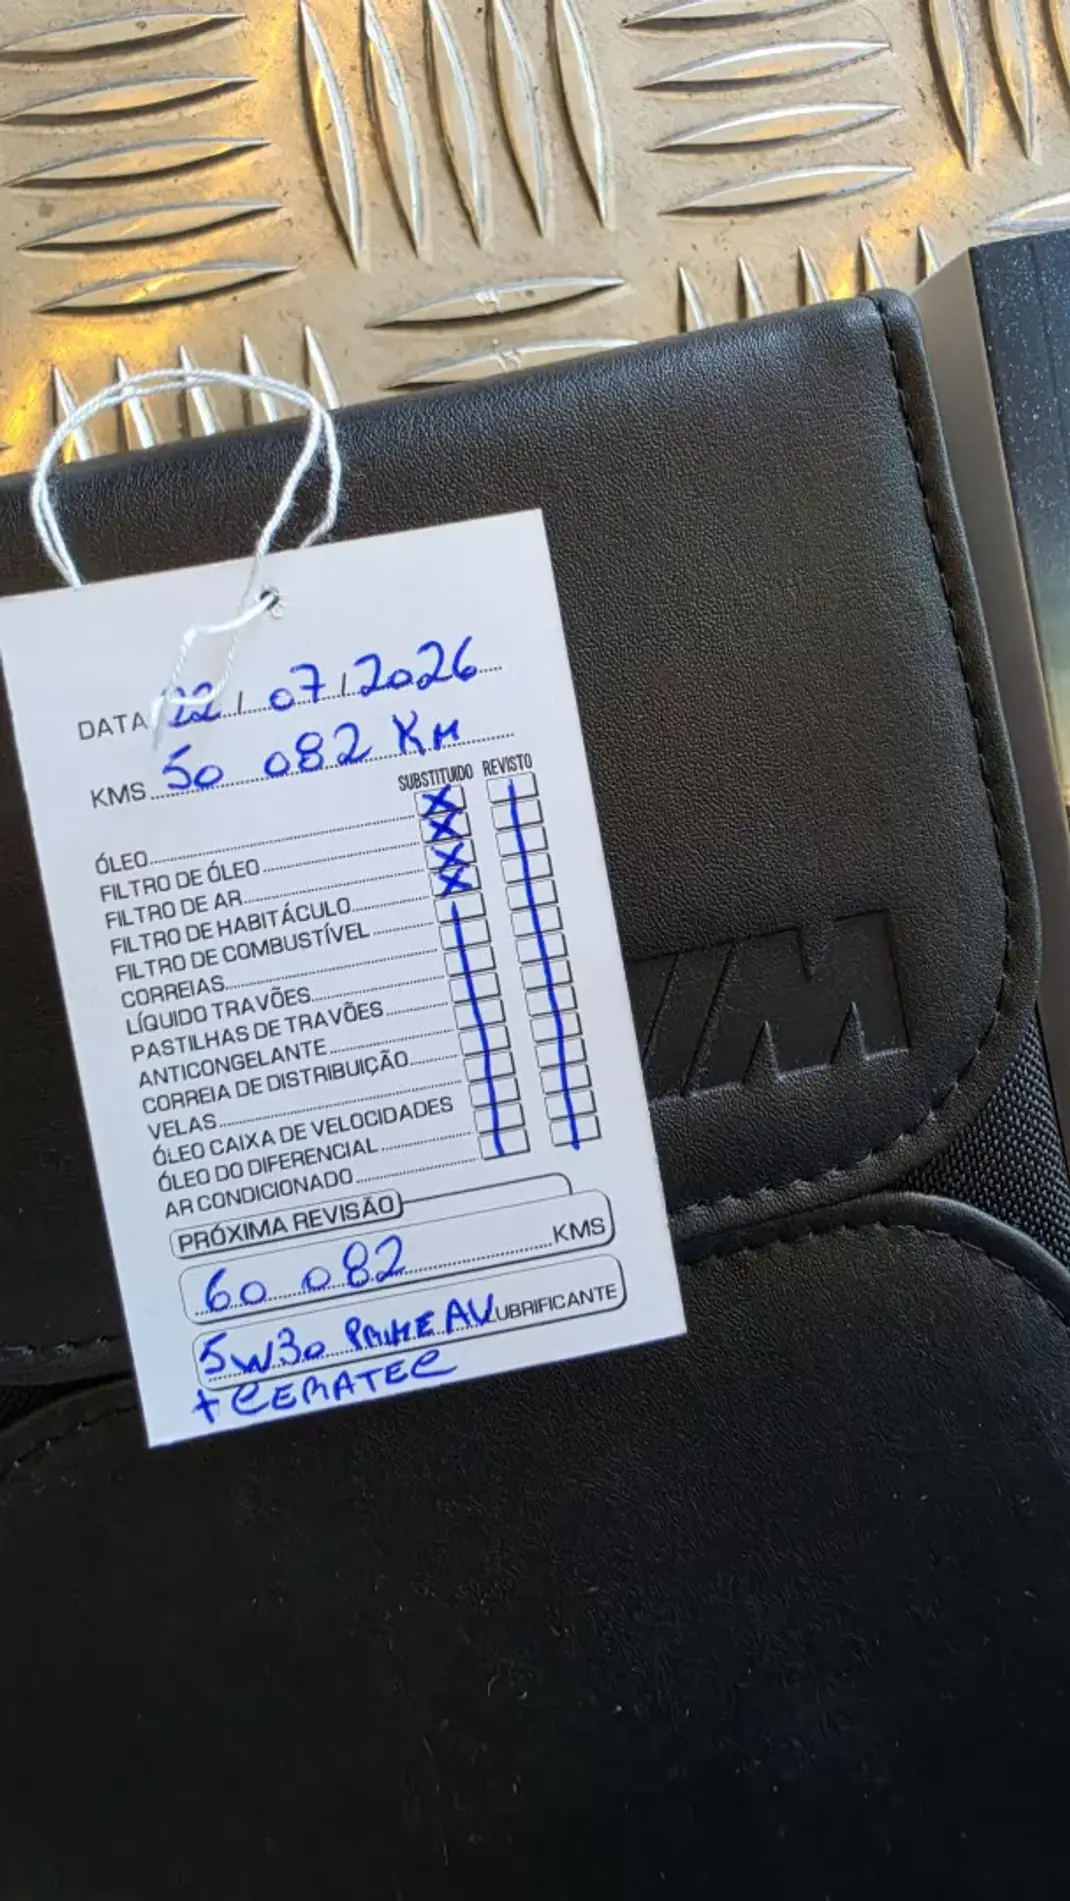 DATA 22/07/2026
KMS 50 082 KM
SUBSTITUIDO REVISTO
ÓLEO X
FILTRO DE ÓLEO X
FILTRO DE AR X
FILTRO DE HABITÁCULO X
FILTRO DE COMBUSTÍVEL
CORREIAS
LÍQUIDO TRAVÕES
PASTILHAS DE TRAVÕES
ANTICONGELANTE
CORREIA DE DISTRIBUIÇÃO
VELAS
ÓLEO CAIXA DE VELOCIDADES
ÓLEO DO DIFERENCIAL
AR CONDICIONADO
PRÓXIMA REVISÃO
60 082 KMS
5W30 PRIME AV LUBRIFICANTE
+ CERATEC
M